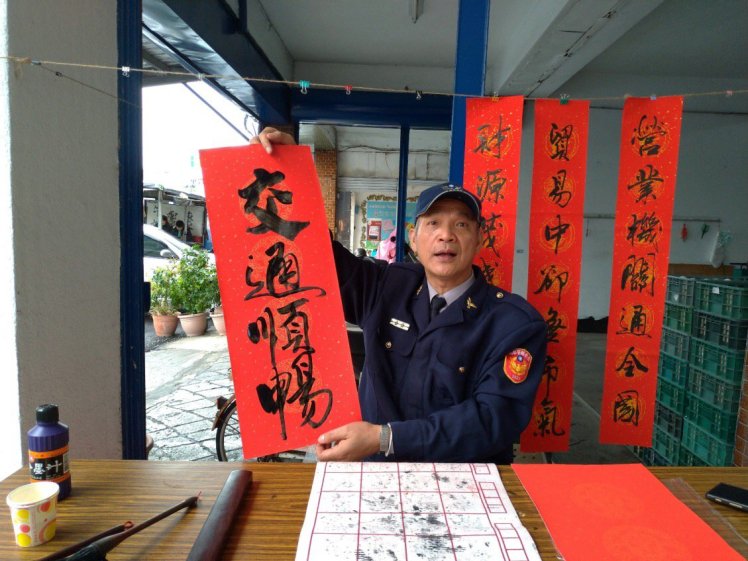 交通順暢
營業機關通全國
貿易中卻無市氣
財源茂
墨汁